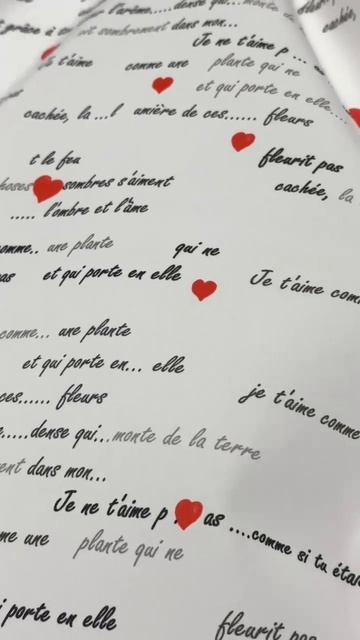 l'arôme.... dense qui... monte de
grâce à
it sombrement dans mon...
cachée
Je ne t'aime p ...
t'aime comme une plante qui ne
et qui porte en elle....
cachée, la ...l umière de ces...... fleurs
t le feu fleurit pas
hoses sombres s'aiment cachée, la
..... l'ombre et l'âme
omme.. une plante qui ne
as et qui porte en elle Je t'aime com
comme... une plante
et qui porte en... elle
ces...... fleurs je t'aime comme
.....dense qui...monte de la terre
ent dans mon...
Je ne t'aime p as ....comme si tu étai
me une plante qui ne
i porte en elle fleurit pas